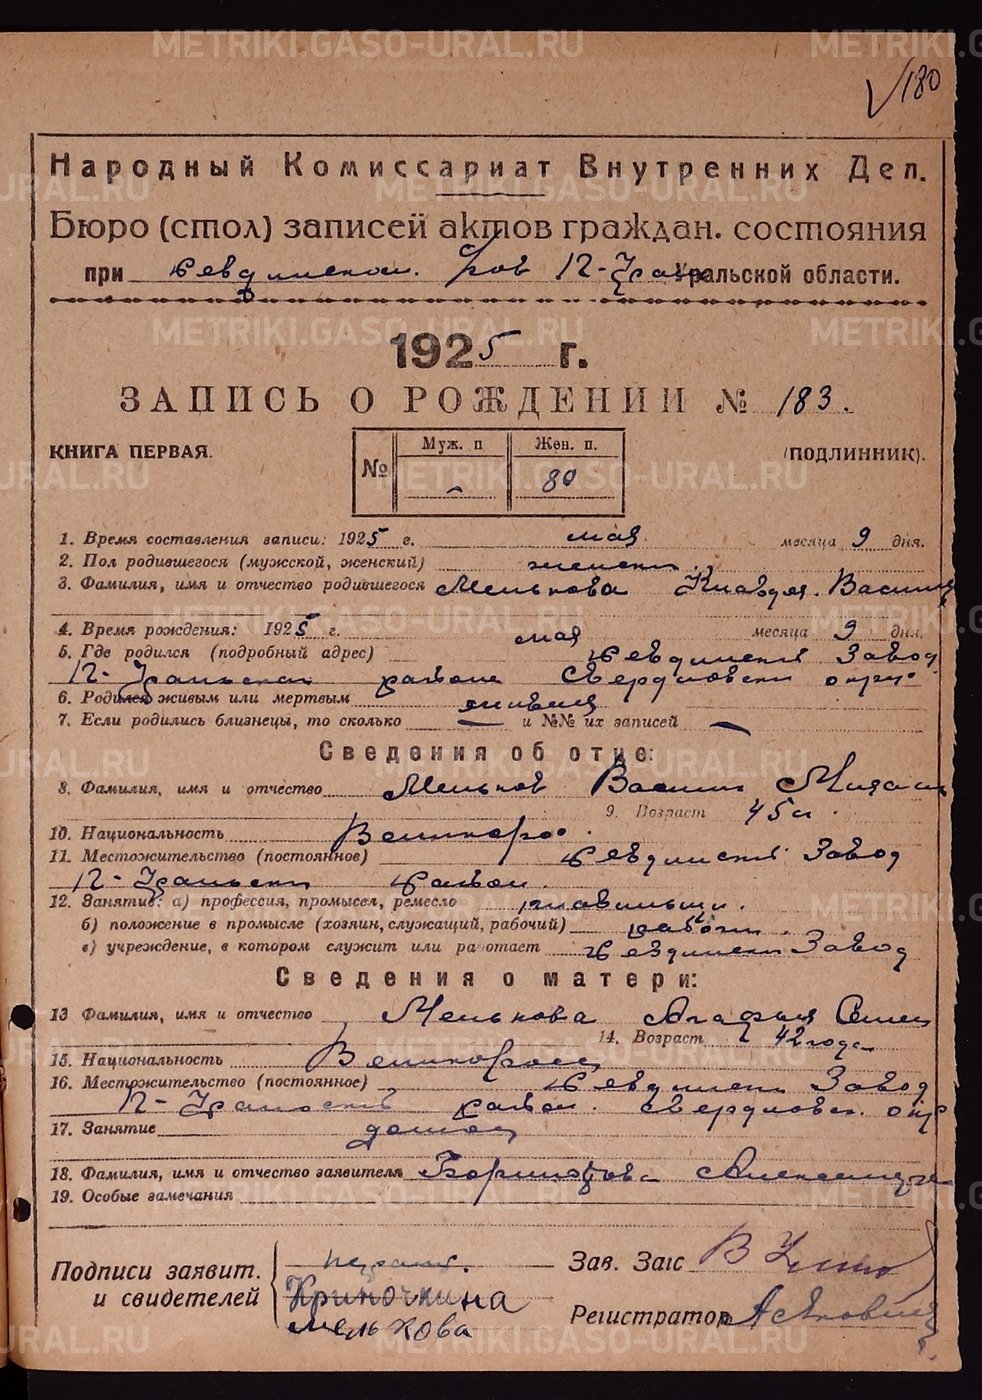 METRIKI.GASO-URAL.RU
180
Народный Комиссариат Внутренних Дел.
Бюро (стол) записей актов граждан. состояния
при Ревдинском П-Урал Уральской области.
1925 г.
ЗАПИСЬ О РОЖДЕНИИ № 183.
КНИГА ПЕРВАЯ.
№ Муж. п Жен. п.
80
(ПОДЛИННИК).
1. Время составления записи: 1925 г. мая месяца 9 дня.
2. Пол родившегося (мужской, женский) женский.
3. Фамилия, имя и отчество родившегося Мелькова Клавдия Васил
4. Время рождения: 1925 г. мая месяца 9 дня.
5. Где родился (подробный адрес) Ревдинский Завод
П-Уральский района Свердловски округ
6. Родился живым или мертвым живый
7. Если родились близнецы, то сколько — и №№ их записей —
Сведения об отце:
8. Фамилия, имя и отчество Мельков Васили Михаил
9. Возраст 45 л.
10. Национальность Великоросс.
11. Местожительство (постоянное) Ревдинский Завод
П-Уральски район.
12. Занятие: а) профессия, промысел, ремесло плавильщи.
б) положение в промысле (хозяин, служащий, рабочий) рабочи.
в) учреждение, в котором служит или работает Ревдински Завод
Сведения о матери:
13 Фамилия, имя и отчество Мелькова Агафья Семен
14. Возраст 42 года
15. Национальность Великоросс
16. Местожительство (постоянное) Ревдински Завод
П-Уральский район. Свердловск. окр
17. Занятие домох
18. Фамилия, имя и отчество заявителя Александ
19. Особые замечания
Подписи заявит.
и свидетелей
неграмот.
Криночкина
мелькова
Зав. Загс
Регистратор